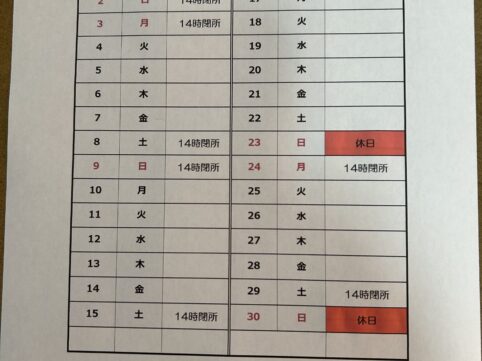 2 日 14時閉所 17 月
3 月 14時閉所 18 火
4 火 19 水
5 水 20 木
6 木 21 金
7 金 22 土
8 土 14時閉所 23 日 休日
9 日 14時閉所 24 月 14時閉所
10 月 25 火
11 火 26 水
12 水 27 木
13 木 28 金
14 金 29 土 14時閉所
15 土 14時閉所 30 日 休日